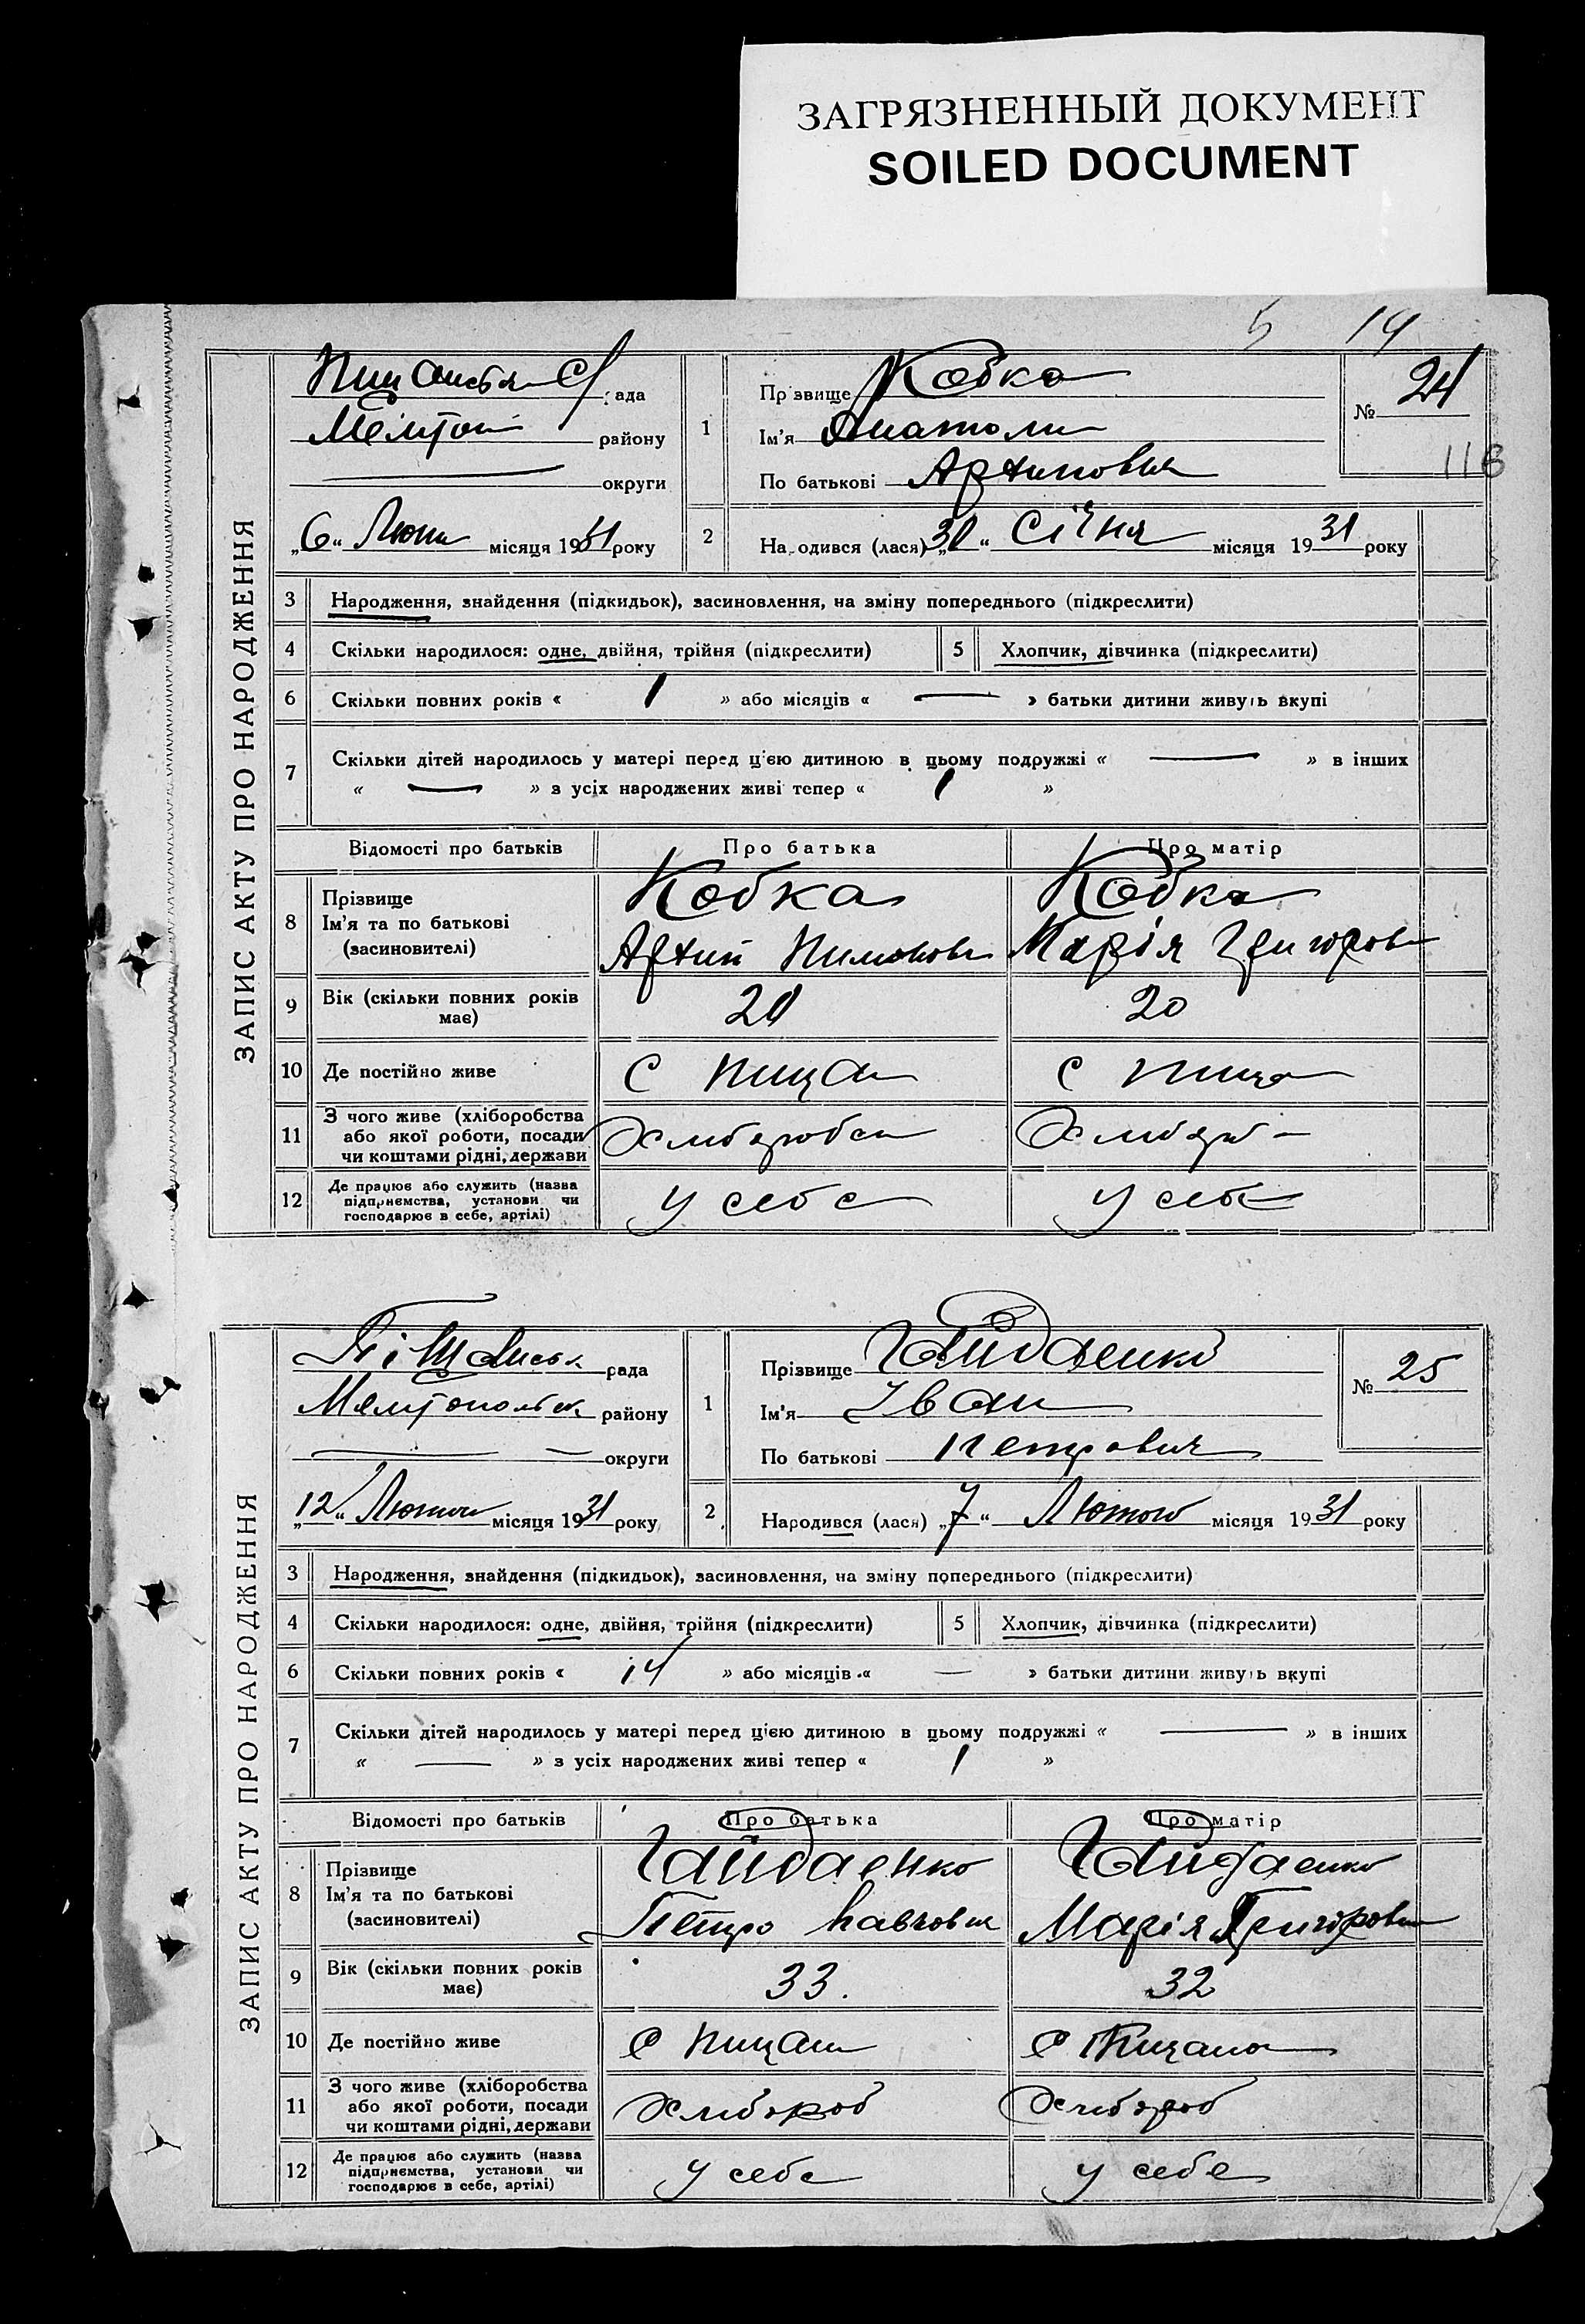 ЗАГРЯЗНЕННЫЙ ДОКУМЕНТ
SOILED DOCUMENT
5 14
ЗАПИС АКТУ ПРО НАРОДЖЕННЯ
рада
Мелітоп району
— округи
„6“ місяця 1931 року
1
Прізвище Кобка
Ім'я Анатоли
По батькові Артиповия
№ 24
116
2
Народився (лася) „30“ Січня місяця 1931 року
3 Народження, знайдення (підкидьок), засиновлення, на зміну попереднього (підкреслити)
4 Скільки народилося: одне, двійня, трійня (підкреслити)
5 Хлопчик, дівчинка (підкреслити)
6 Скільки повних років « 1 » або місяців « — » батьки дитини живуть вкупі
7 Скільки дітей народилось у матері перед цією дитиною в цьому подружжі « — » в інших
« — » з усіх народжених живі тепер « 1 »
Відомості про батьків Про батька Про матір
8 Прізвище
Ім'я та по батькові
(засиновителі)
Кобка
Кобка
Марія Григоров
9 Вік (скільки повних років має) 21 20
10 Де постійно живе с Пища с Пища
11 З чого живе (хліборобства
або якої роботи, посади
чи коштами рідні, держави
Хлібороб Хлібороб
12 Де працює або служить (назва
підприємства, установи чи
господарює в себе, артілі)
у себе у себе
ЗАПИС АКТУ ПРО НАРОДЖЕННЯ
Піщанськ рада
Мелітопольськ району
— округи
„12“ Лютого місяця 1931 року
1
Прізвище Гайдаенко
Ім'я Іван
По батькові Петрович
№ 25
2
Народився (лася) „7“ Лютого місяця 1931 року
3 Народження, знайдення (підкидьок), засиновлення, на зміну попереднього (підкреслити)
4 Скільки народилося: одне, двійня, трійня (підкреслити)
5 Хлопчик, дівчинка (підкреслити)
6 Скільки повних років « 14 » або місяців « — » батьки дитини живуть вкупі
7 Скільки дітей народилось у матері перед цією дитиною в цьому подружжі « — » в інших
« — » з усіх народжених живі тепер « 1 »
Відомості про батьків Про батька Про матір
8 Прізвище
Ім'я та по батькові
(засиновителі)
Гайдаенко Гайдаенко
Петро Павлович Марія Григоров
9 Вік (скільки повних років має) 33. 32
10 Де постійно живе с Пищан с Пищана
11 З чого живе (хліборобства
або якої роботи, посади
чи коштами рідні, держави
Хлібороб Хлібороб
12 Де працює або служить (назва
підприємства, установи чи
господарює в себе, артілі)
у себе у себе